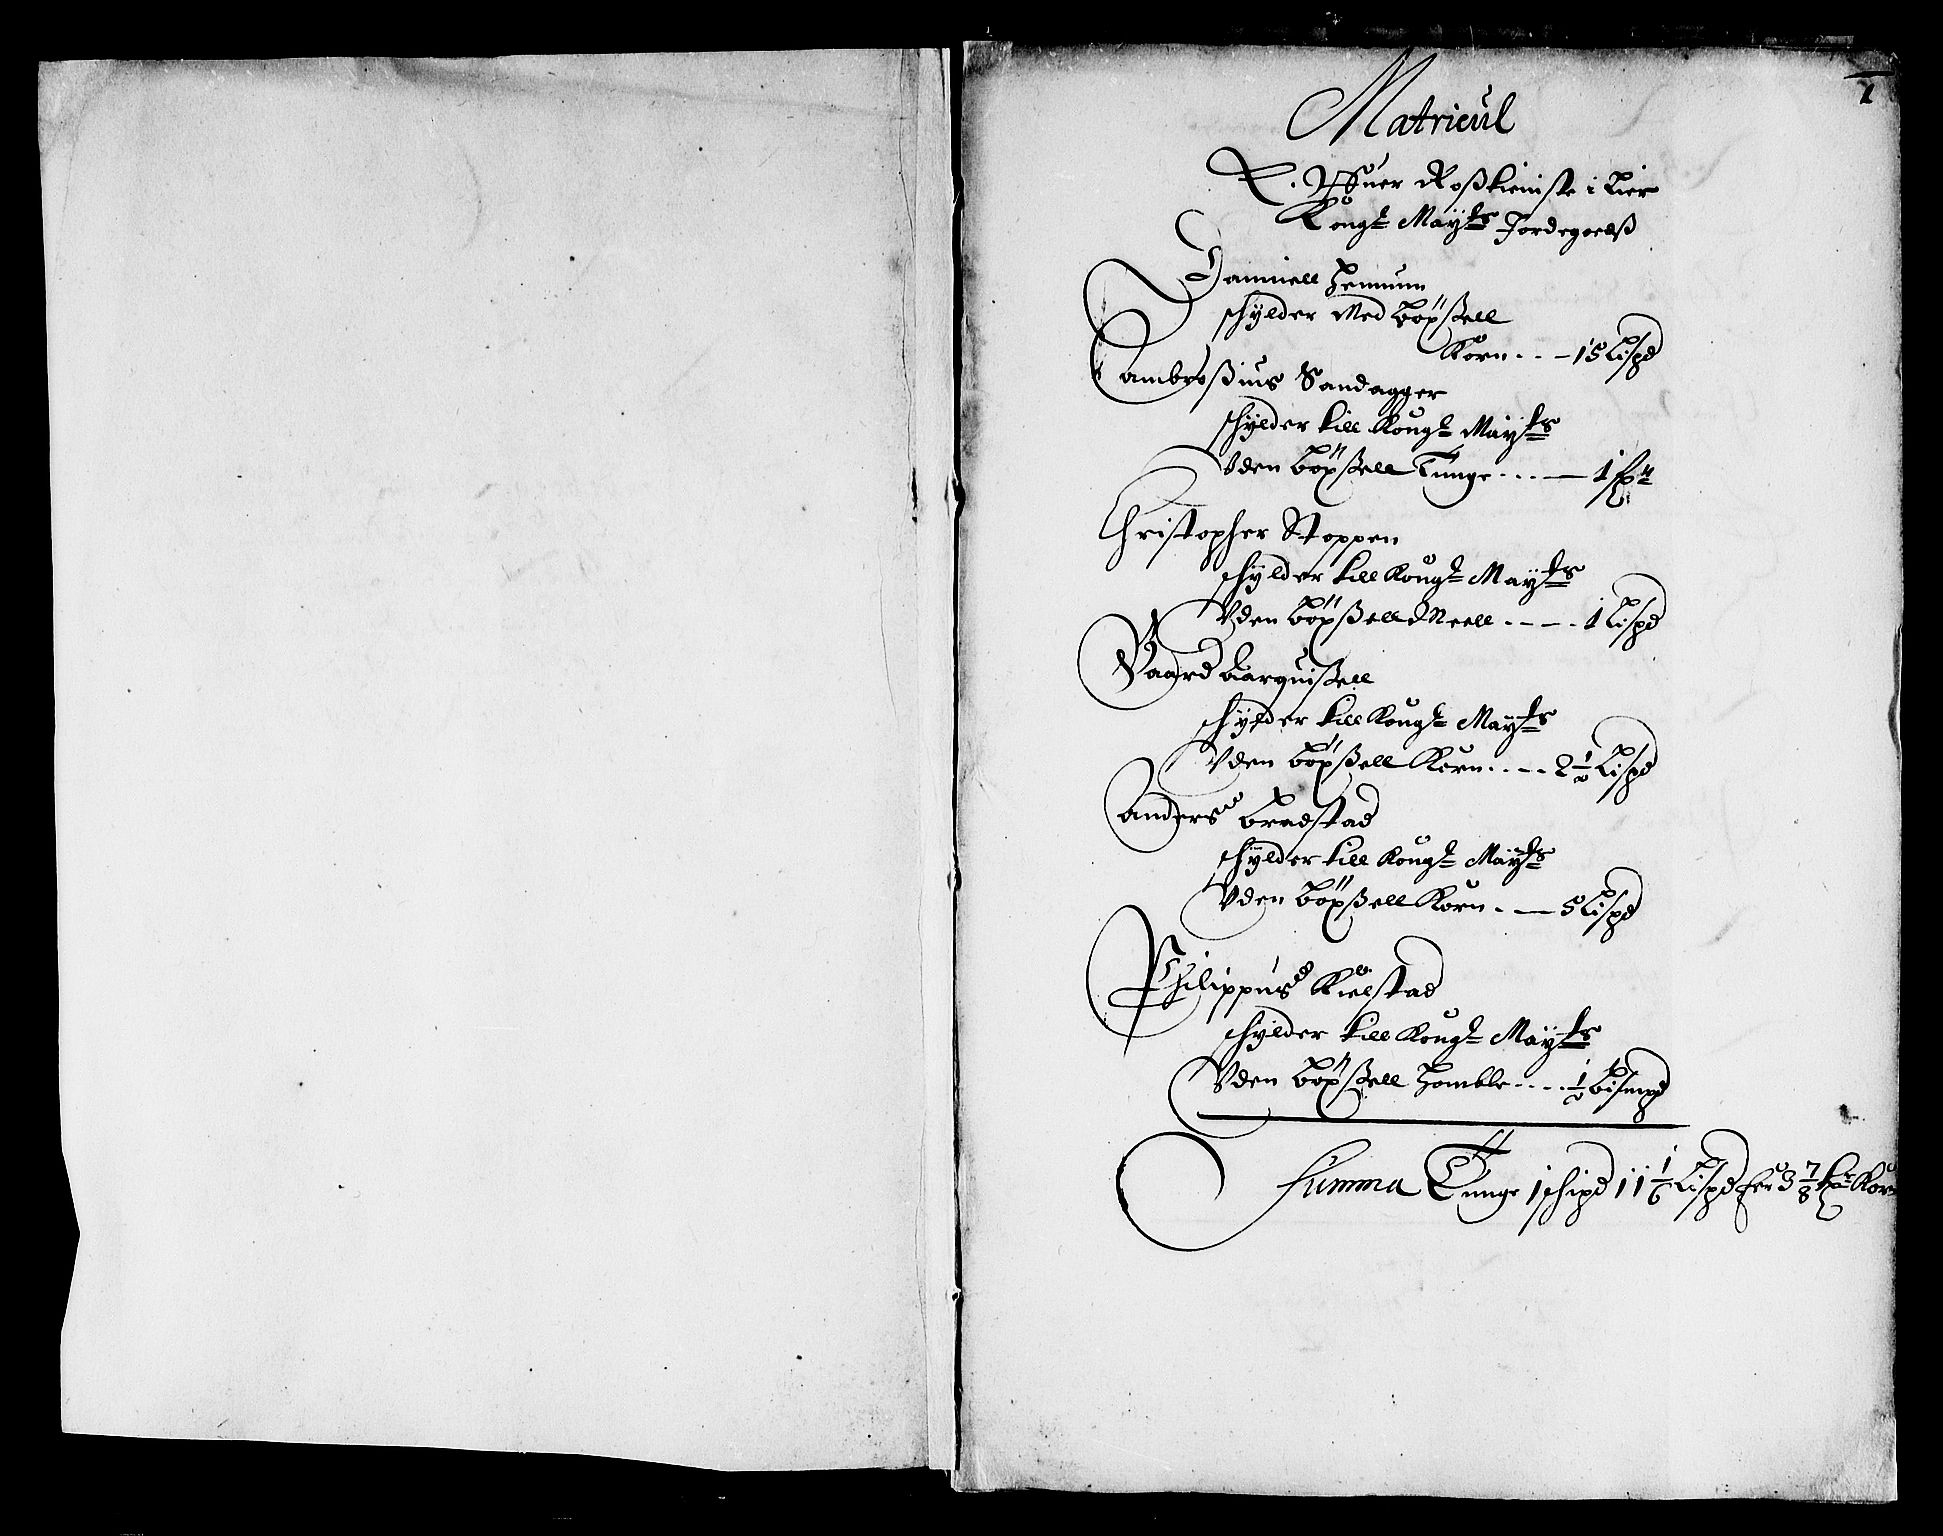 1
Matricul
Offuer Roßtieniste i Lier
Kongl Mayts Jordegoedß
Damniell Hennum
schylder Med böxßell
Korn - - - 15 Lispd
Ambroßius Sandagger
schylder till Kongl Mayts
Vden böxßell Tunge - - - 1 fʒr
Christopher Stoppen
schylder till Kongl Mayts
Vden böxßell Meell - - - - 1 Lispd
Gaard Aarquißell
schylder till Kongl Mayts
Vden böxßell Korn - - - - 2 1/2 Lispd
Anders Bradstad
schylder till Kongl Mayts
Vden böxßell Korn - - 5 Lispd
Philippus Kielstad
schylder till Kongl Mayts
Vden böxßell Homble - - - - 1/2 bismpd
Summa Tunge 1 schipd 11 1/6 Lispd 3 7/8 Korn